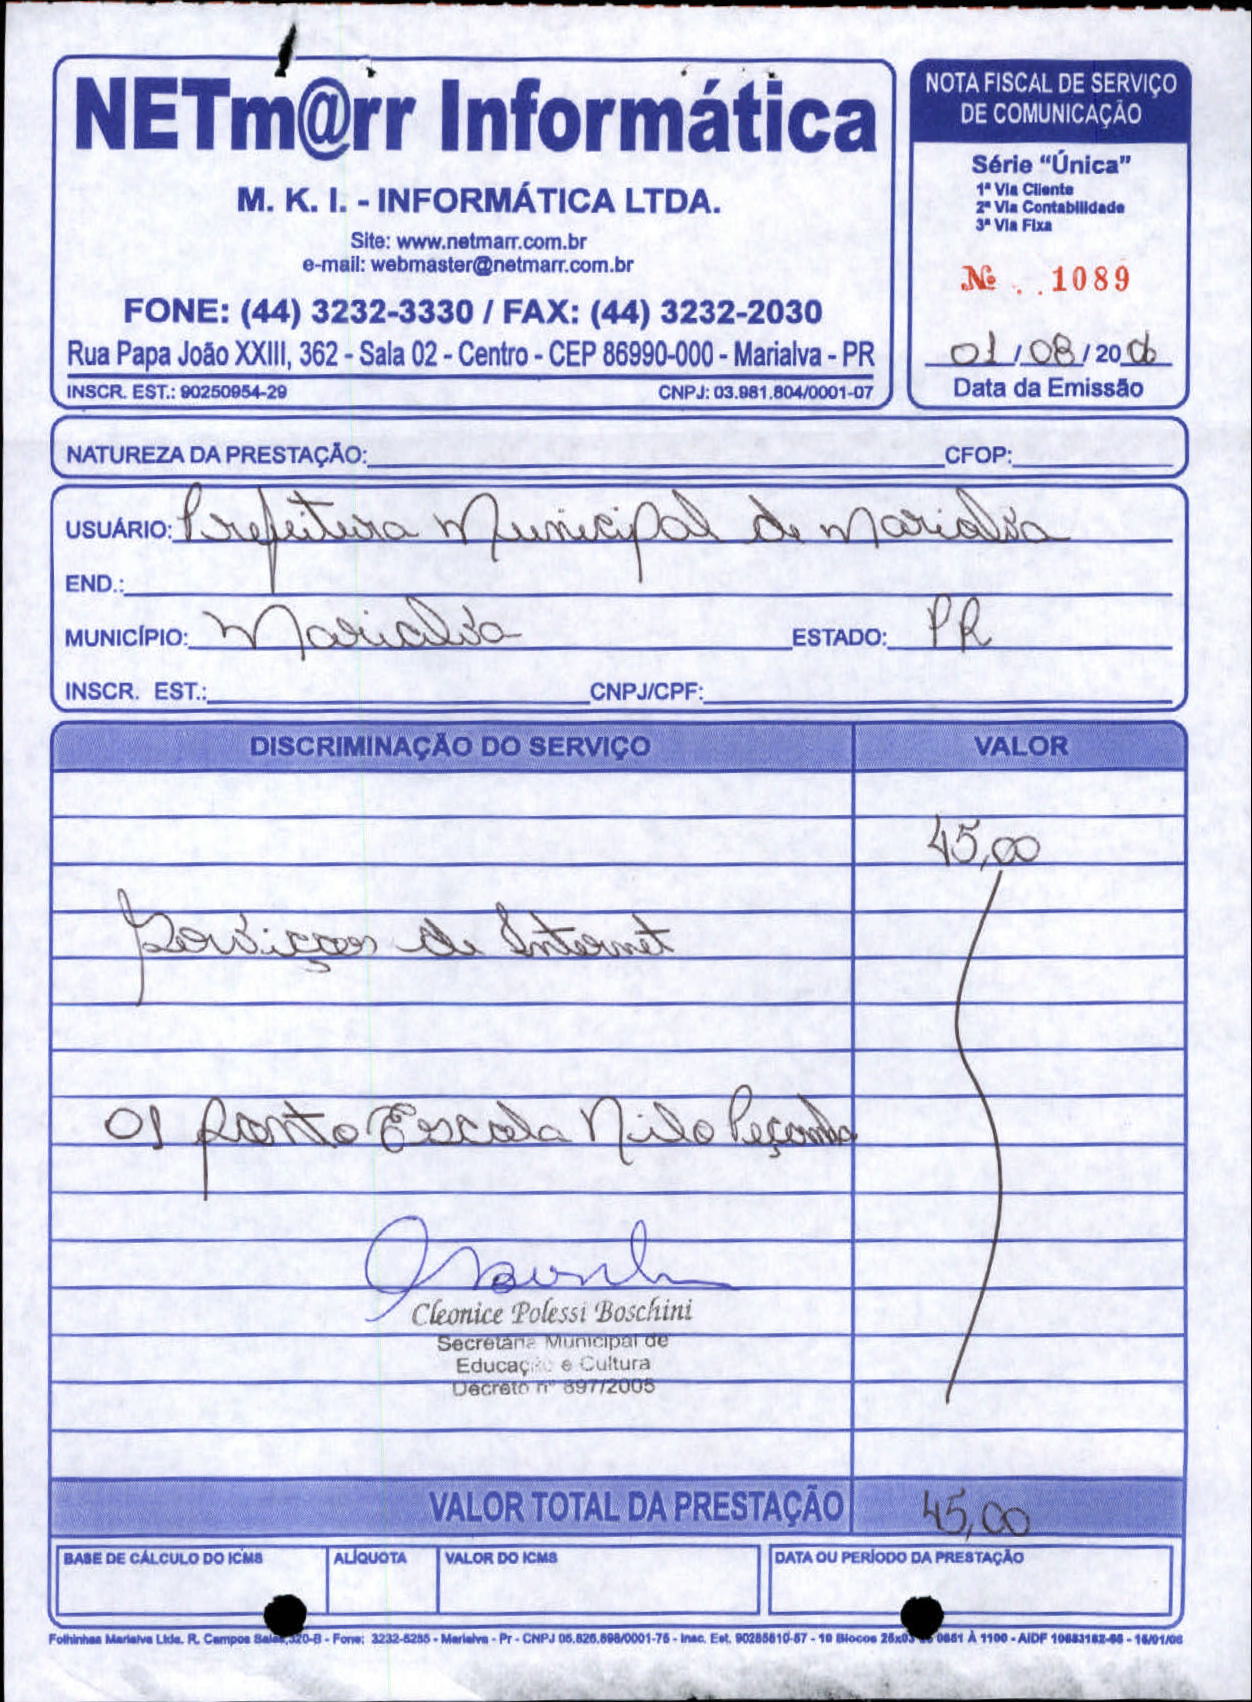 NETm@rr Informática
M. K. I. - INFORMÁTICA LTDA.
Site: www.netmarr.com.br
e-mail: webmaster@netmarr.com.br
FONE: (44) 3232-3330 / FAX: (44) 3232-2030
Rua Papa João XXIII, 362 - Sala 02 - Centro - CEP 86990-000 - Marialva - PR
INSCR. EST.: 90250954-29 CNPJ: 03.981.804/0001-07
NOTA FISCAL DE SERVIÇO
DE COMUNICAÇÃO
Série “Única”
1ª Via Cliente
2ª Via Contabilidade
3ª Via Fixa
Nº 1089
01 / 08 / 20 06
Data da Emissão
NATUREZA DA PRESTAÇÃO: CFOP:
USUÁRIO: Prefeitura Municipal de Marialva
END.:
MUNICÍPIO: Marialva ESTADO: PR
INSCR. EST.: CNPJ/CPF:
DISCRIMINAÇÃO DO SERVIÇO VALOR
45,00
Serviços de Internet
01 ponto Escola Nilo Peçanha
Cleonice Polessi Boschini
Secretaria Municipal de
Educação e Cultura
Decreto nº 897/2005
VALOR TOTAL DA PRESTAÇÃO 45,00
BASE DE CÁLCULO DO ICMS ALÍQUOTA VALOR DO ICMS DATA OU PERÍODO DA PRESTAÇÃO
Folhinhas Marialva Ltda. R. Campos Sales, 320-B - Fone: 3232-5255 - Marialva - Pr - CNPJ 05.826.898/0001-75 - Insc. Est. 90285810-57 - 10 Blocos 25x03 0851 À 1100 - AIDF - 16/01/06